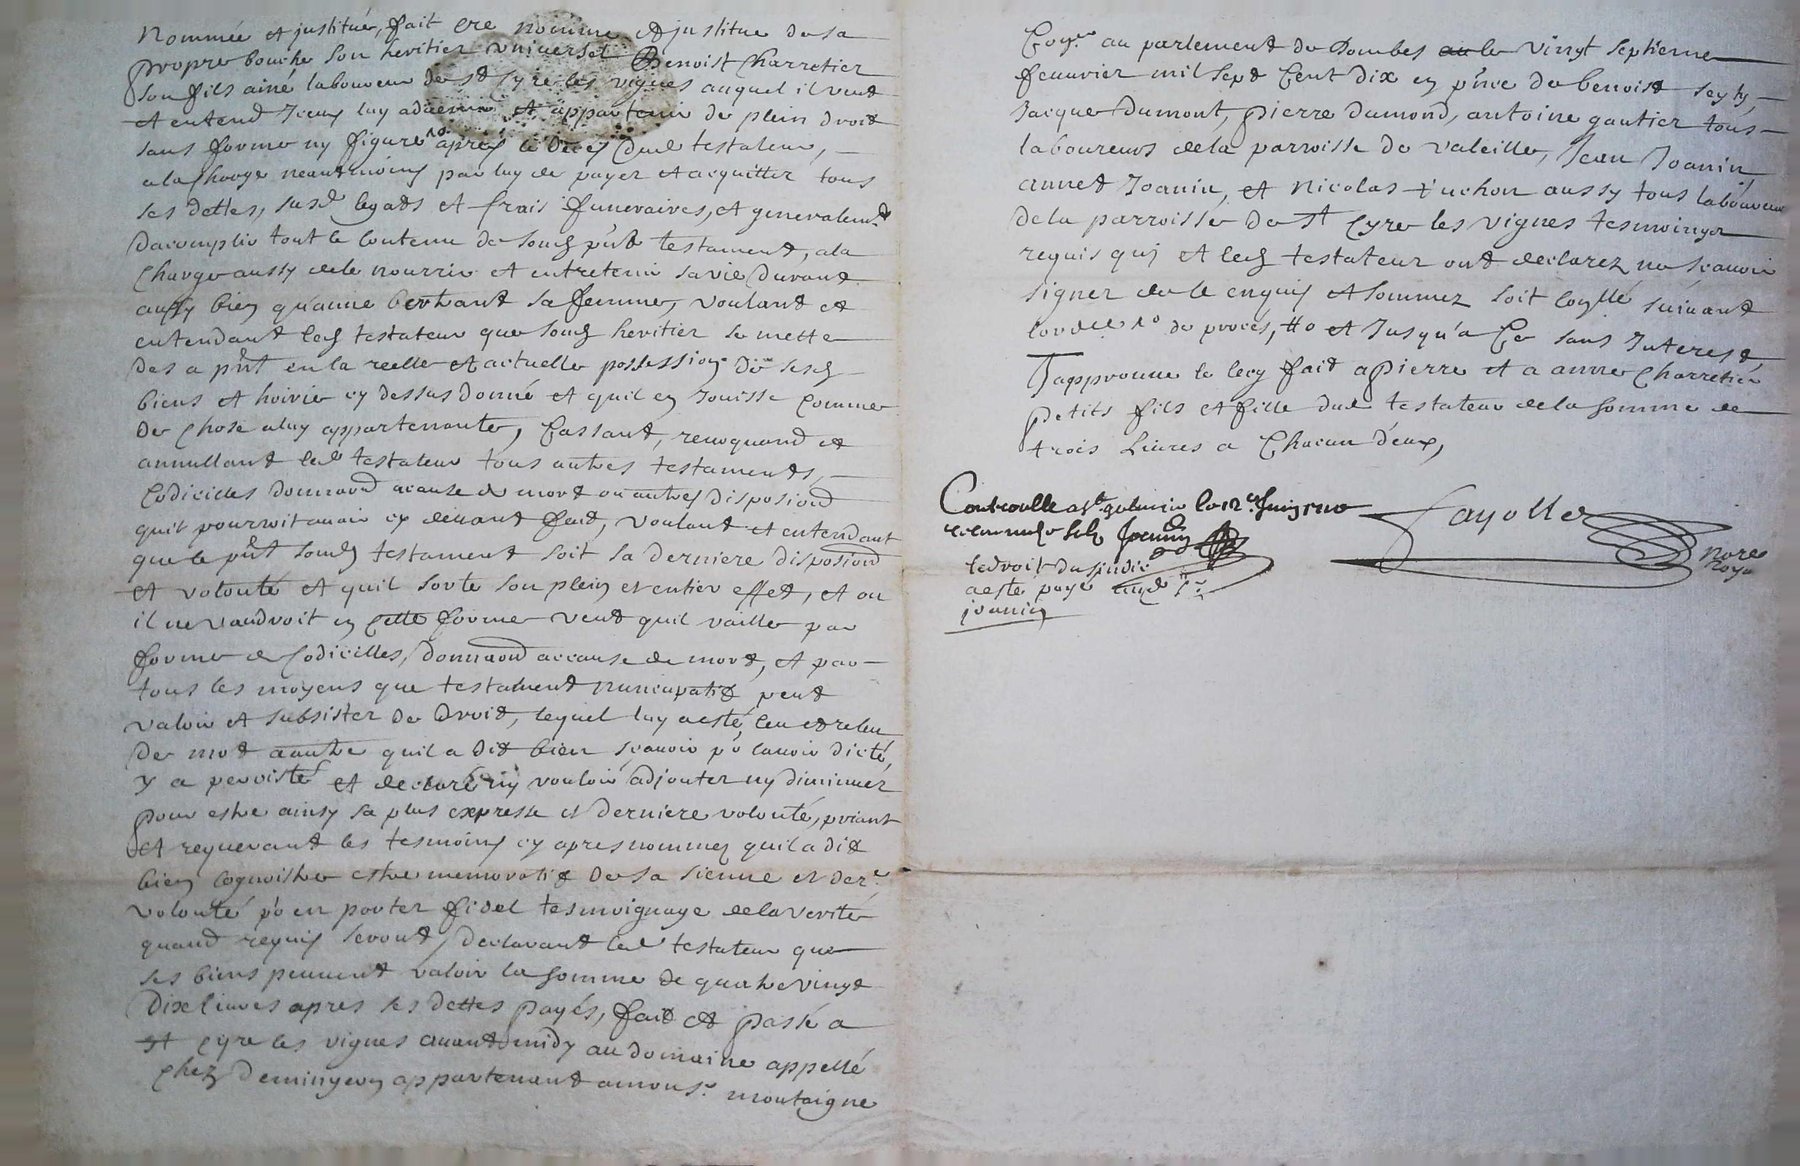 Nommée et justitué, fait cre nomme et justitue de sa
propre bouche son heritier universel Benoist Charretier
son fils ainé laboureur de St Cyre les vignes auquel il veut
et entend Iceux luy advenir et appartenir de plein droit
sans forme ny figure apres le déces dud testateur,
a la charge neantmoins par luy de payer et acquitter tous
ses dettes, susd legats et frais funeraires, et generalemt
dacomplir tout le contenu de sond pnt testament, a la
charge aussy de le nourrir et entretenir sa vie durant
aussy bien qu'anne berthant sa femme, voulant et
entendant led testateur que sond heritier se mette
des a pnt en la reelle et actuelle possession de sesd
biens et hoirie cy dessus donné et quil en Jouisse comme
de chose a luy appartenante, Cassant, revoquand et
annullant led testateur tous autres testaments,
Codicilles donnaond acause de mort ou autres disposiond
quil pourroit avoir cy devant fait, voulant et entendant
que le pnt sond testament soit sa derniere disposiond
et volonté et quil sorte son plein et entier effet, et ou
il ne vaudroit en cette forme veut quil vaille par
forme de Codicilles, donnaond accause de mort, et par
tous les moyens que testament nuncupatif peut
valoir et subsister de Droit, lequel luy a esté leu et releu
de mot aautre quil a dit bien scavoir po lavoir dicté,
y a persisté et declaré ny vouloir adjouter ny diminuer
pour estre ainsy sa plus expresse et derniere volonté, priant
et requerant les tesmoins cy apres nommez quil a dit
bien cognoistre estre memoratif de sa sienne et dere
volonté po en porter fidel tesmoignage de la verité
quand requis seront, declarant led testateur que
ses biens peuvent valoir la somme de quatre vingt
dix livres apres ses dettes payés, fait et passé a
St Cyre les vignes avant midy au domaine appellé
chez appartenant a monsr montaigne
au parlement de Dombes le vingt septieme
fevrier mil sept Cent dix en pnce de benoist
Jacque Dumont, pierre dumond, antoine gautier tous
laboureurs de la parroisse de valeille, Jean Joanin
annet Joanin, et Nicolas aussy tous laboureur
de la parroisse de St Cyre les vignes tesmoings
requis quj et led testateur ont declarez ne scavoir
signer de le enquis et sommez soit suivant
lordce no de procés, et Jusqu'a Ce sans Interest
Japprouve le leg fait a Pierre et a anne Charretier
petits fils et fille dud testateur de la somme de
trois livres a Chacun d'eux,
Controolle a St galmier le 12e Juin 1710
Fayolle
Nore
Royal
le droit du
a esté payé
joanin